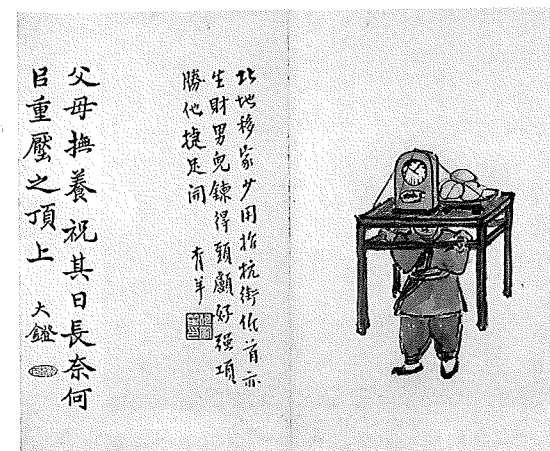 北地移家少用抬抗街低首亦
生財男兒鍊得頭顱好強項
勝他捷足
青羊
父母撫養祝其日長奈何
㠯重壓之頂上
大鐙